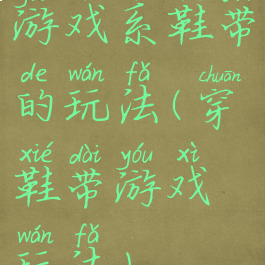 游戏系鞋带
de wán fǎ chuān
的玩法(穿
xié dài yóu xì
鞋带游戏
wán fǎ
玩法)